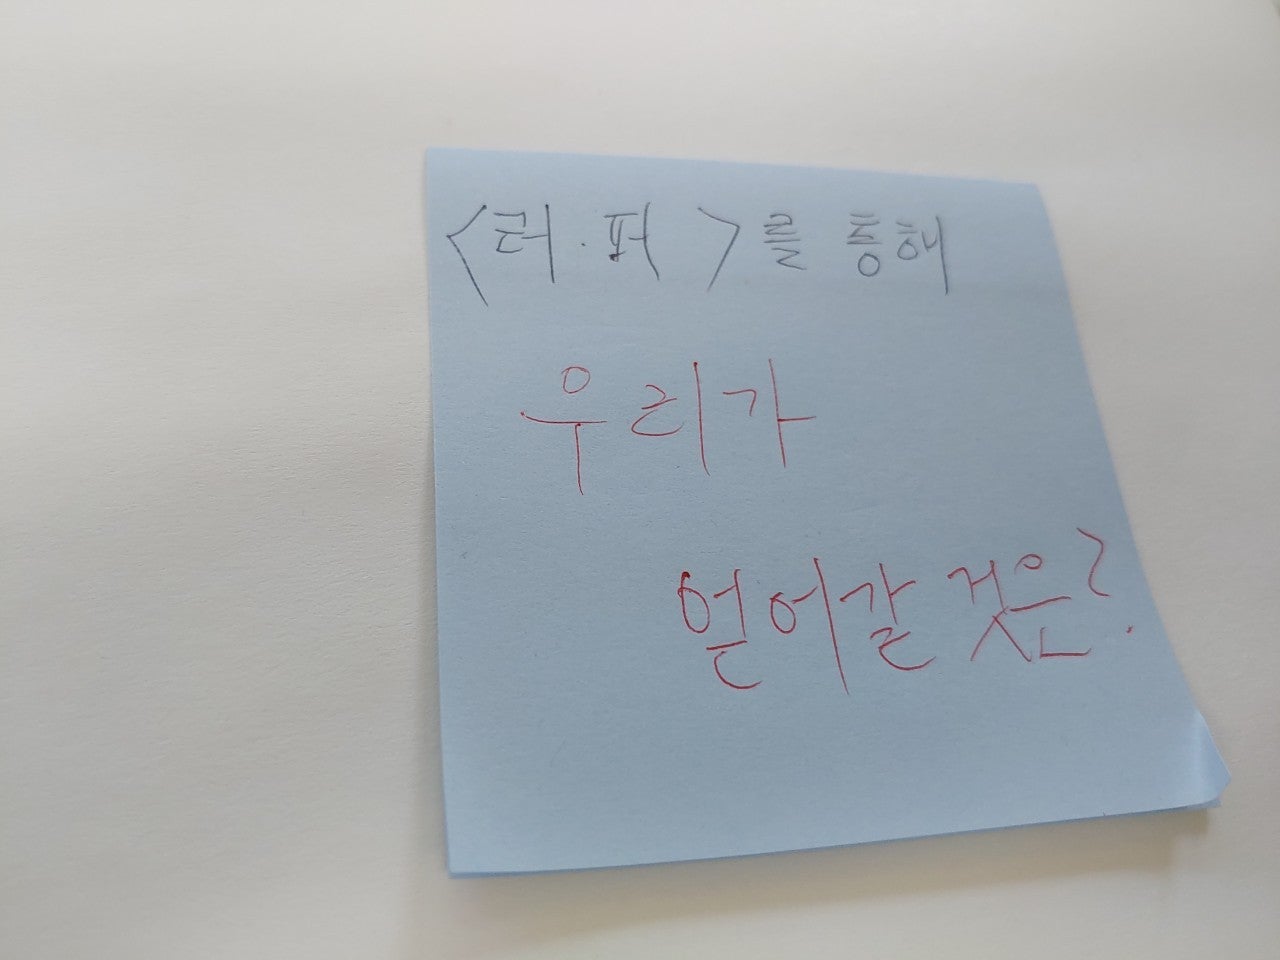 <러.퍼>를 통해
우리가
얻어갈 것은?